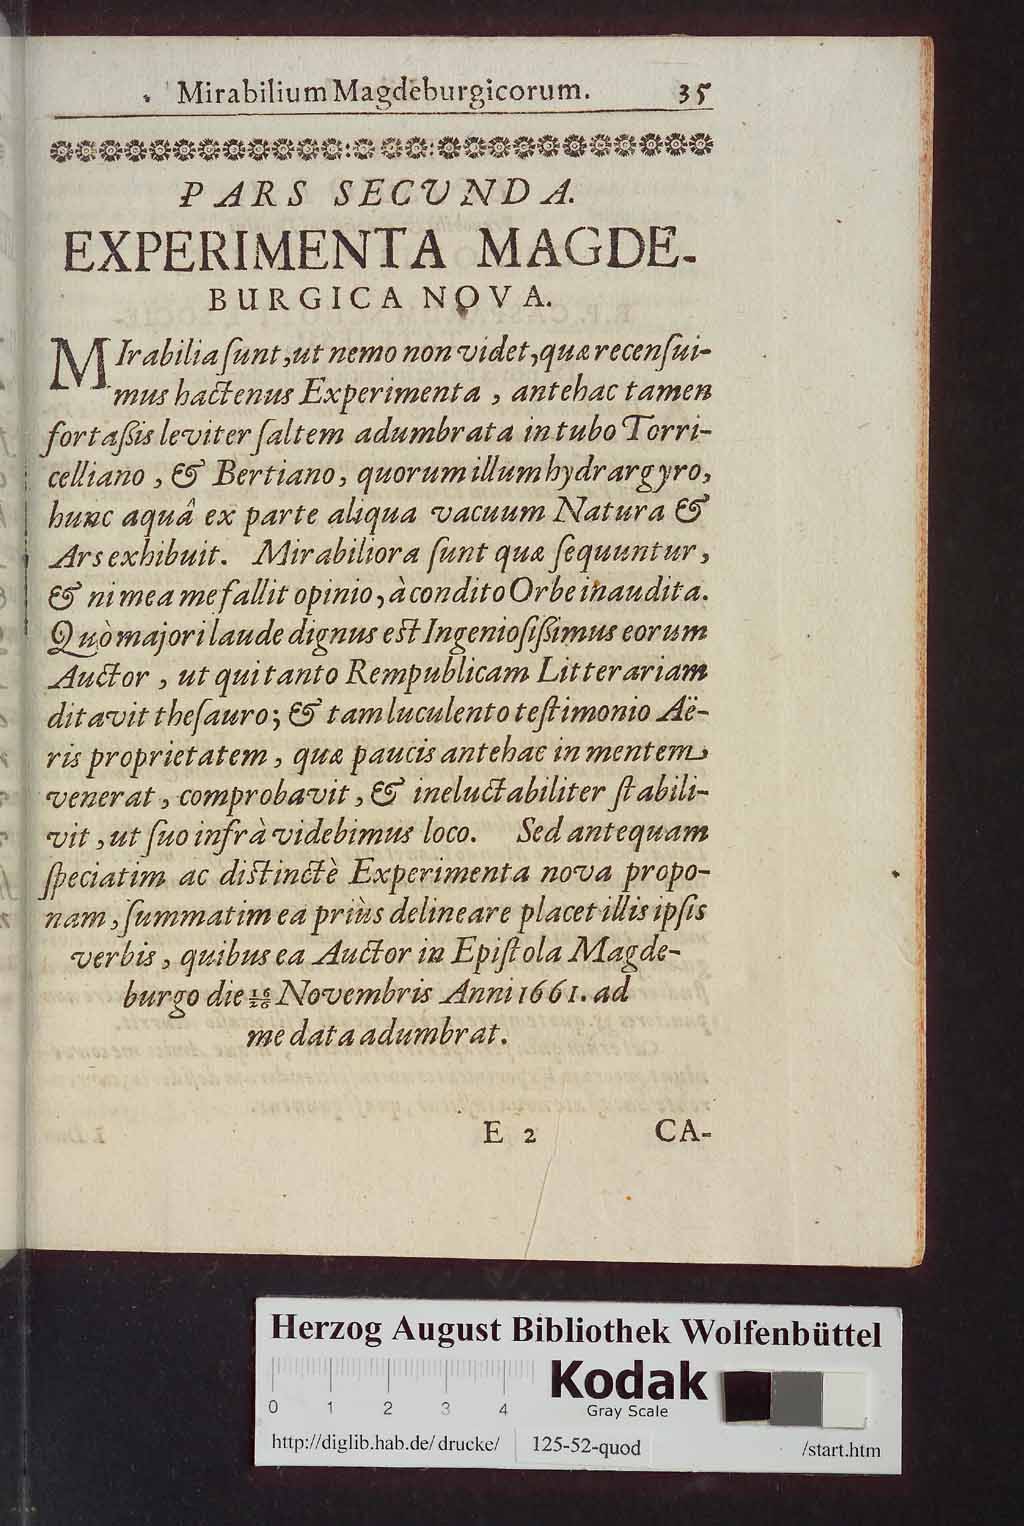 Mirabilium Magdeburgicorum. 35
PARS SECVNDA.
EXPERIMENTA MAGDE-
BURGICA NOVA.
MIrabilia ſunt, ut nemo non videt, quæ recenſui-
mus hactenus Experimenta, antehac tamen
fortaßis leviter ſaltem adumbrata in tubo Torri-
celliano, & Bertiano, quorum illum hydrargyro,
hunc aquâ ex parte aliqua vacuum Natura &
Ars exhibuit. Mirabiliora ſunt quæ ſequuntur,
& ni mea me fallit opinio, à condito Orbe inaudita.
Quò majori laude dignus est Ingenioſißimus eorum
Auctor, ut qui tanto Rempublicam Litterariam
ditavit theſauro; & tam luculento teſtimonio Aë-
ris proprietatem, quæ paucis antehac in mentem
venerat, comprobavit, & ineluctabiliter ſtabili-
vit, ut ſuo infrà videbimus loco. Sed antequam
ſpeciatim ac distinctè Experimenta nova propo-
nam, ſummatim ea priùs delineare placet illis ipſis
verbis, quibus ea Auctor in Epiſtola Magde-
burgo die 16/26 Novembris Anni 1661. ad
me data adumbrat.
E 2 CA-
Herzog August Bibliothek Wolfenbüttel
Kodak
0 1 2 3 4 Gray Scale
http://diglib.hab.de/drucke/ 125-52-quod /start.htm